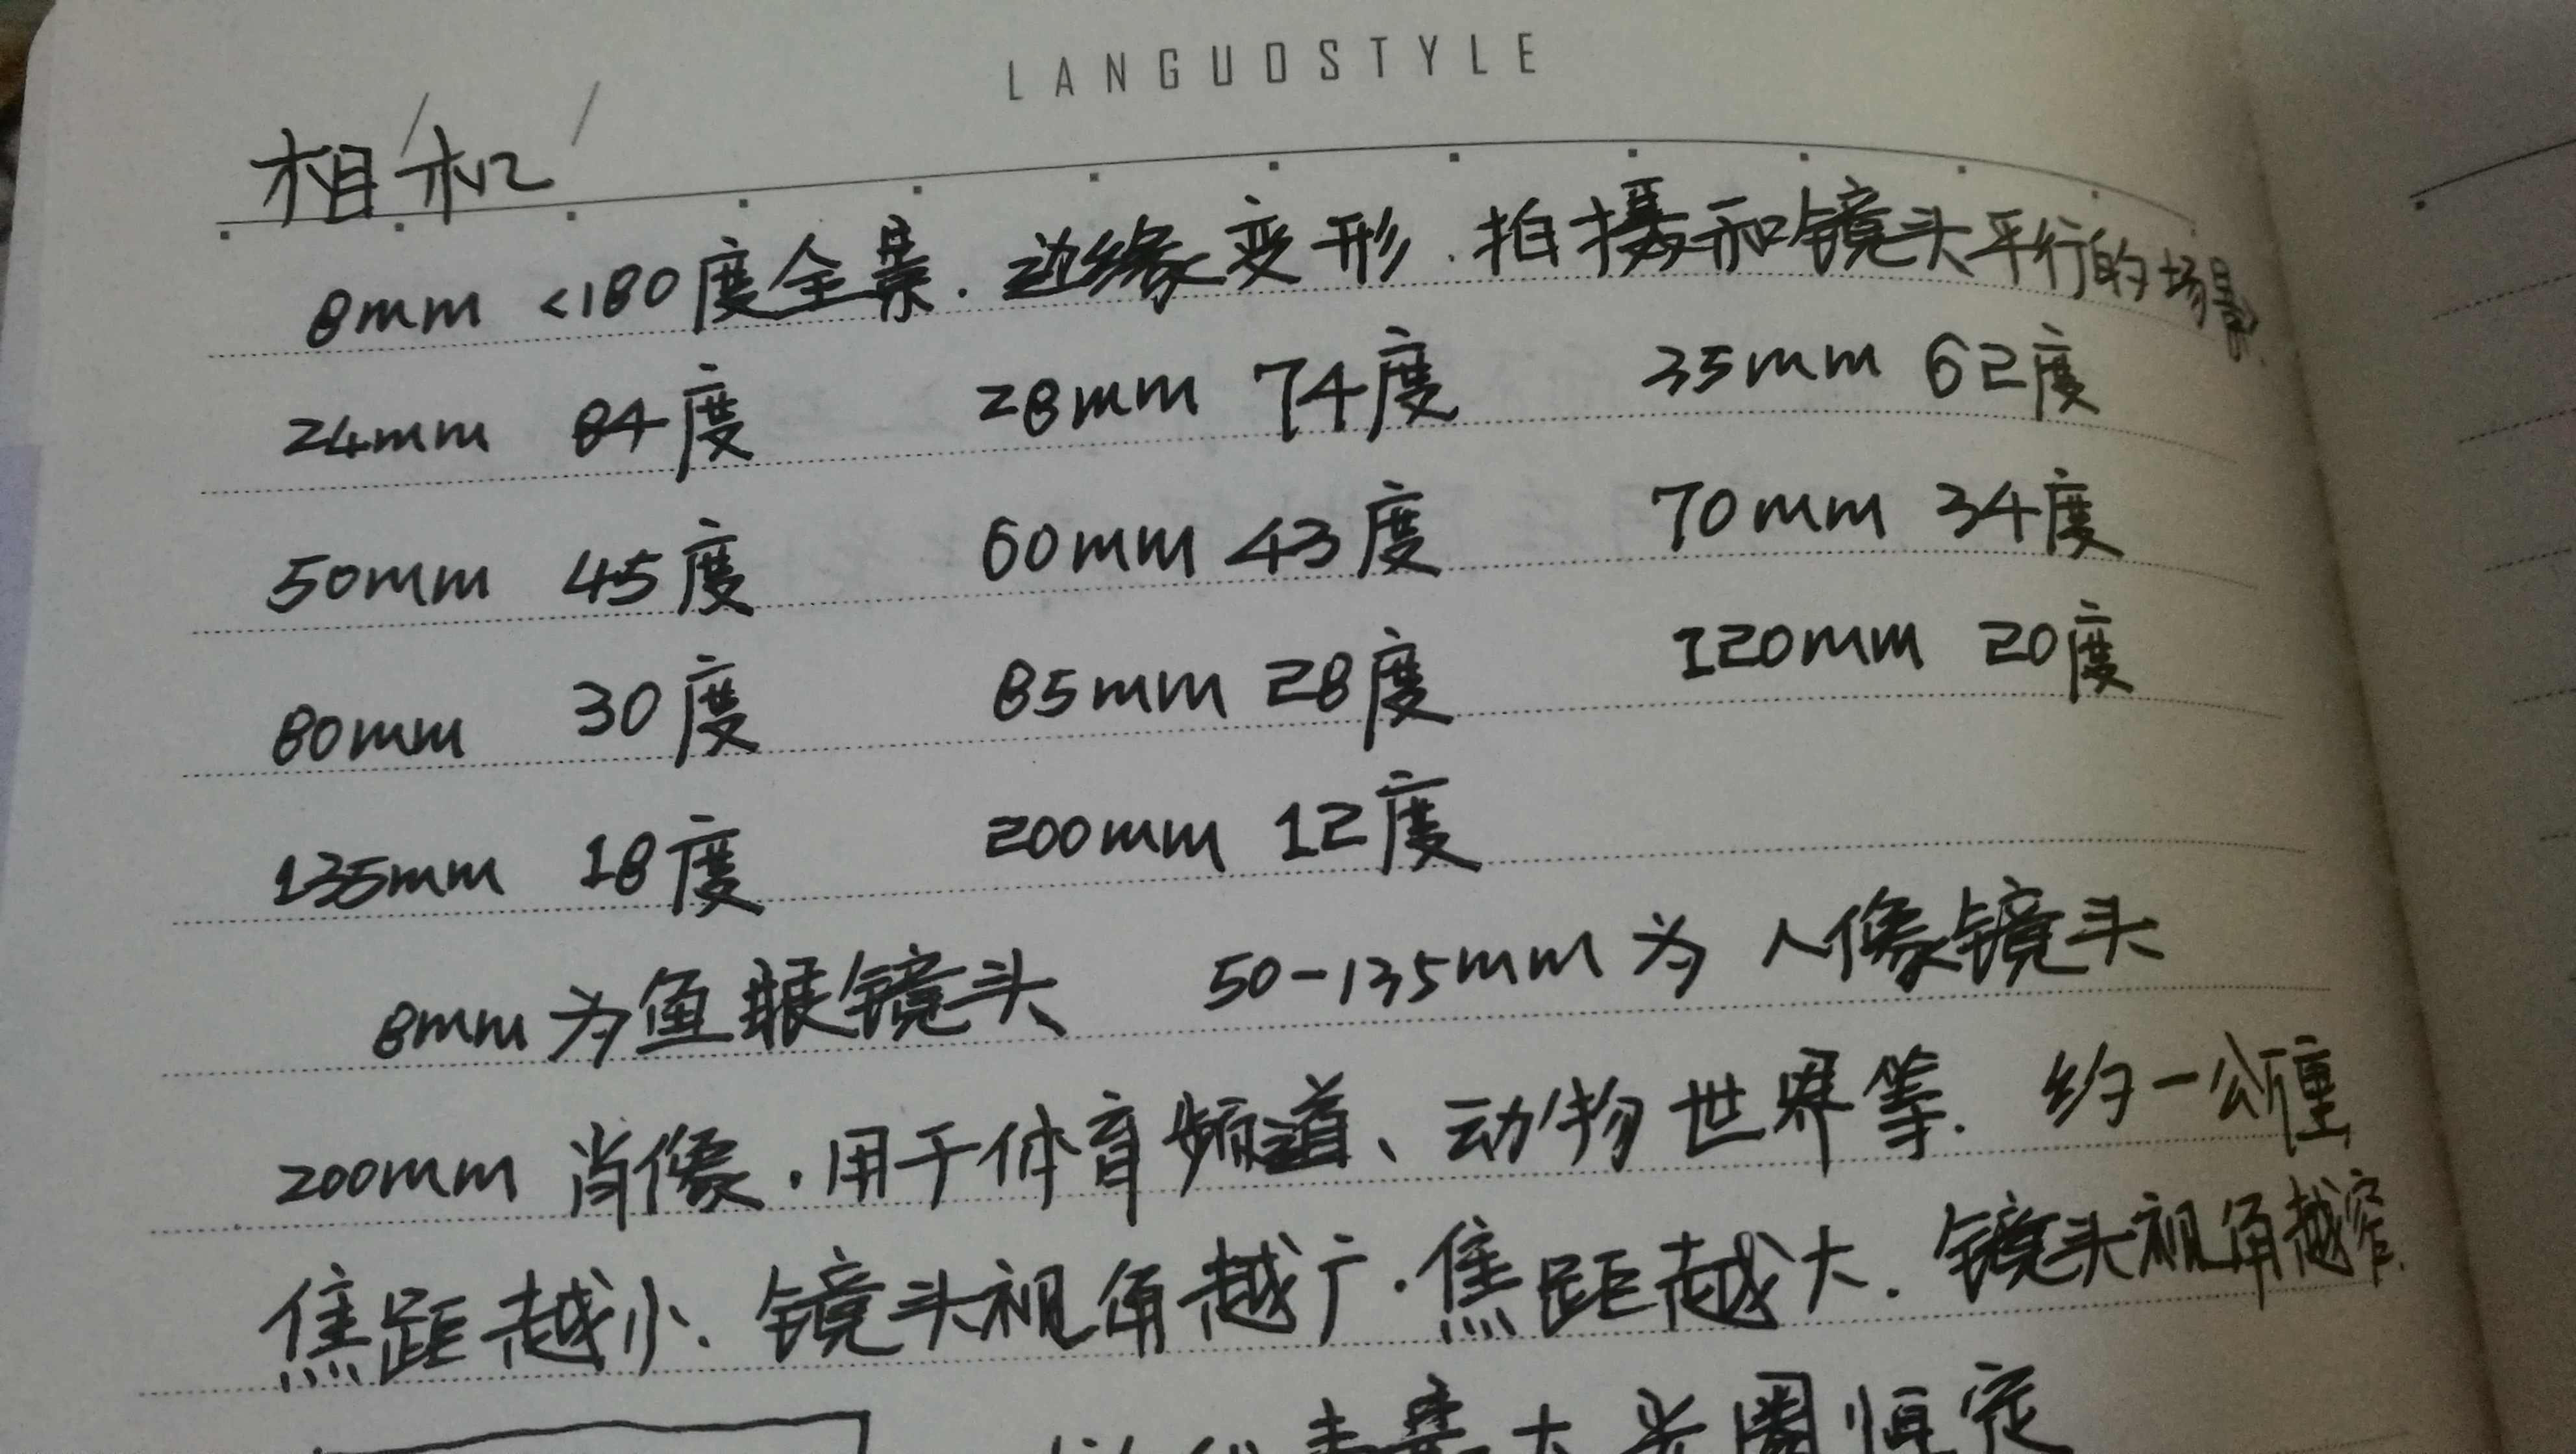 LANGUOSTYLE
相机
8mm <180度全景. 边缘变形. 拍摄和镜头平行的场景.
24mm 84度 28mm 74度 35mm 62度
50mm 45度 60mm 43度 70mm 34度
80mm 30度 85mm 28度 120mm 20度
135mm 18度 200mm 12度
8mm为鱼眼镜头 50-135mm为人像镜头
200mm 肖像.用于体育频道、动物世界等. 约一公厘
焦距越小. 镜头视角越广.焦距越大. 镜头视角越窄.
大光圈恒定